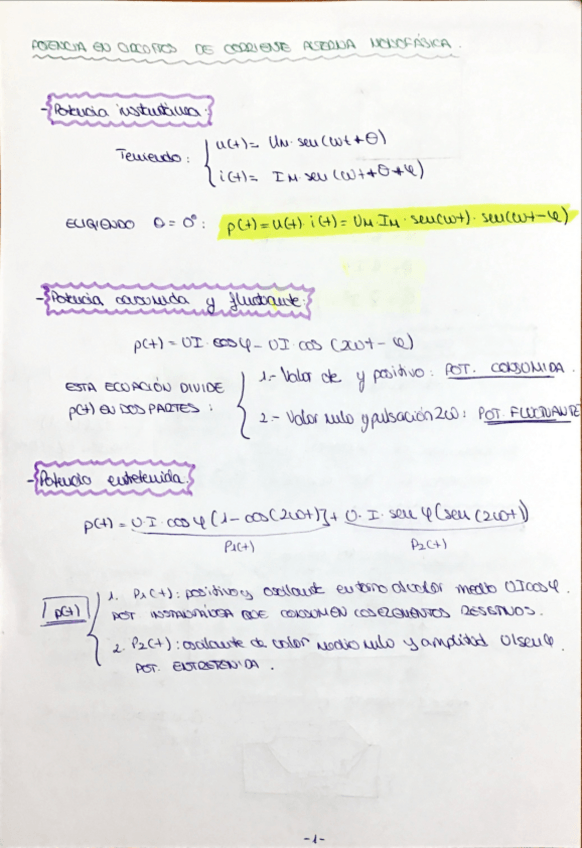 POTENCIA EN CIRCUITOS DE CORRIENTE ALTERNA MONOFÁSICA.
- Potencia instantánea:
Teniendo: { u(t) = UM · sen (ωt + θ)
i(t) = IM · sen (ωt + θ + φ)
ELIGIENDO θ = 0°: p(t) = u(t) · i(t) = UM · IM · sen(ωt) · sen(ωt - φ)
- Potencia consumida y fluctuante:
p(t) = UI · cos φ - UI · cos (2ωt - φ)
ESTA ECUACIÓN DIVIDE
p(t) EN DOS PARTES:
1.- Valor de y positivo: POT. CONSUMIDA.
2.- Valor nulo y pulsación 2ω: POT. FLUCTUANTE
- Potencia entretenida:
p(t) = U · I · cos φ [1 - cos(2ωt)] + U · I · sen φ (sen (2ωt))
P1(t) P2(t)
p(t) { 1. P1(t): positivo y oscilante en torno al valor medio UI cos φ.
POT INSTANTÁNEA QUE CONSUMEN LOS ELEMENTOS RESISTIVOS.
2. P2(t): oscilante de valor medio nulo y amplitud UI sen φ.
POT. ENTRETENIDA.
-1-